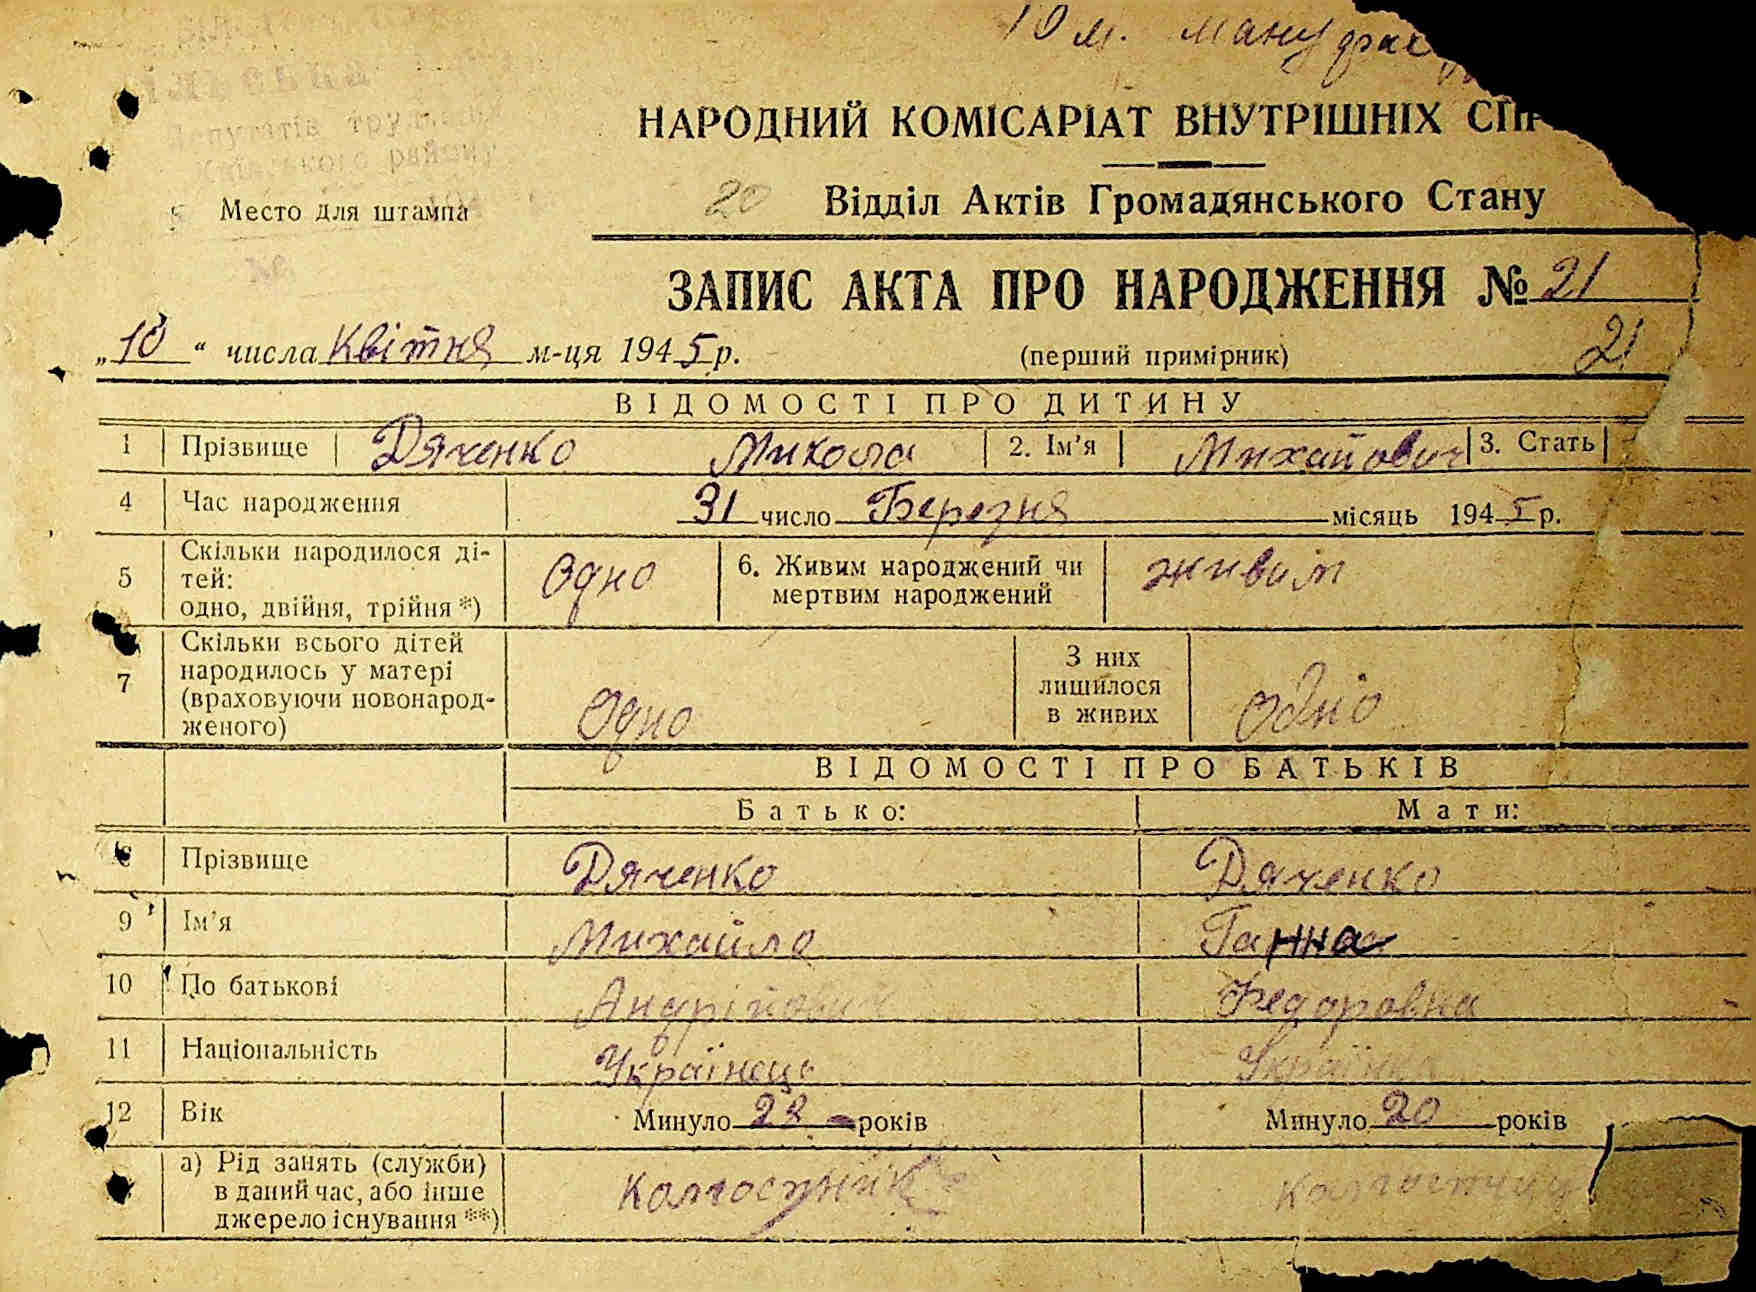 10 м.
НАРОДНИЙ КОМІСАРІАТ ВНУТРІШНІХ СПР
Депутатів
району
Место для штампа
20 Відділ Актів Громадянського Стану
№
ЗАПИС АКТА ПРО НАРОДЖЕННЯ № 21
„10“ числа Квітня м-ця 1945 р. (перший примірник) 21
ВІДОМОСТІ ПРО ДИТИНУ
1 Прізвище Дяченко Микола 2. Ім’я Михайович 3. Стать
4 Час народження 31 число Березня місяць 1945 р.
5 Скільки народилося ді-
тей:
одно, двійня, трійня *) Одно 6. Живим народжений чи
мертвим народжений живим
7 Скільки всього дітей
народилось у матері
(враховуючи новонарод-
женого) Одно З них
лишилося
в живих одно
ВІДОМОСТІ ПРО БАТЬКІВ
Батько: Мати:
8 Прізвище Дяченко Дяченко
9 Ім’я Михайло Ганна
10 По батькові Андрійович Федоровна
11 Національність Українець Українка
12 Вік Минуло 22 років Минуло 20 років
а) Рід занять (служби)
в даний час, або інше
джерело існування **) колгоспник